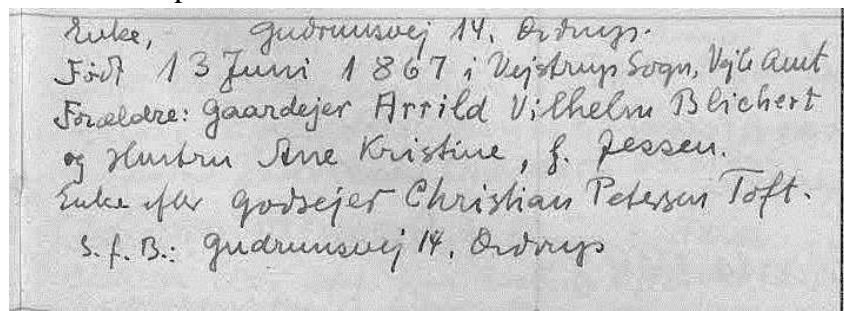 Enke, Gudrunsvej 14. Ordrup.
Født 13 Juni 1867 i Vejstrup Sogn, Vejle Amt
Forældre: Gaardejer Arrild Vilhelm Blichert
og Hustru Ane Kristine, f. Jessen.
Enke efter Godsejer Christian Petersen Toft.
S. f. B.: Gudrunsvej 14. Ordrup